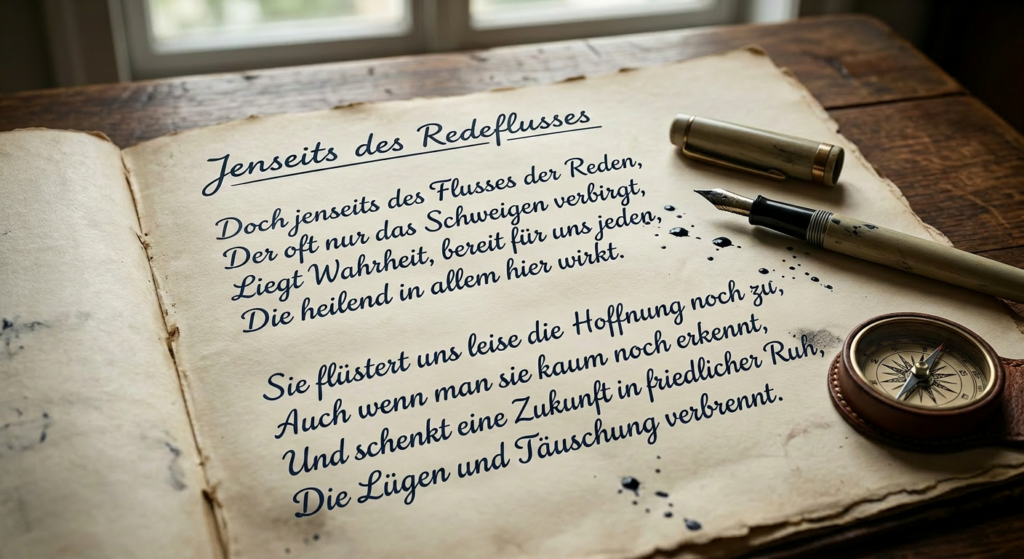 Jenseits des Redeflusses
Doch jenseits des Flusses der Reden,
Der oft nur das Schweigen verbirgt,
Liegt Wahrheit, bereit für uns jeden,
Die heilend in allem hier wirkt.
Sie flüstert uns leise die Hoffnung noch zu,
Auch wenn man sie kaum noch erkennt,
Und schenkt eine Zukunft in friedlicher Ruh,
Die Lügen und Täuschung verbrennt.